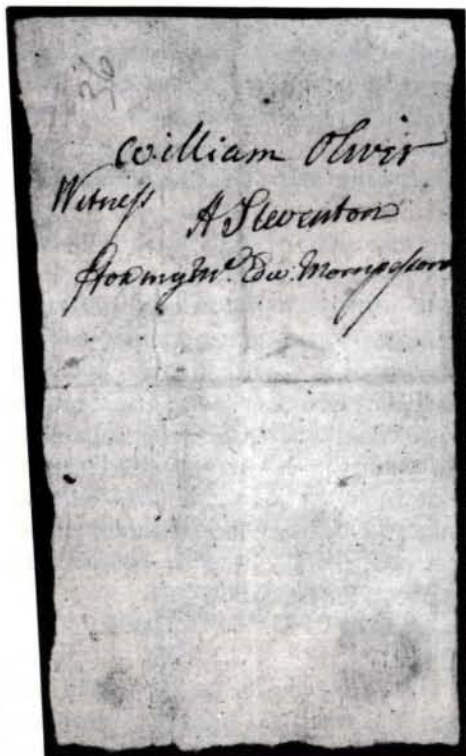 36
William Oliver
Witness
A Steventon
for my Mr. Edw. Mompesson